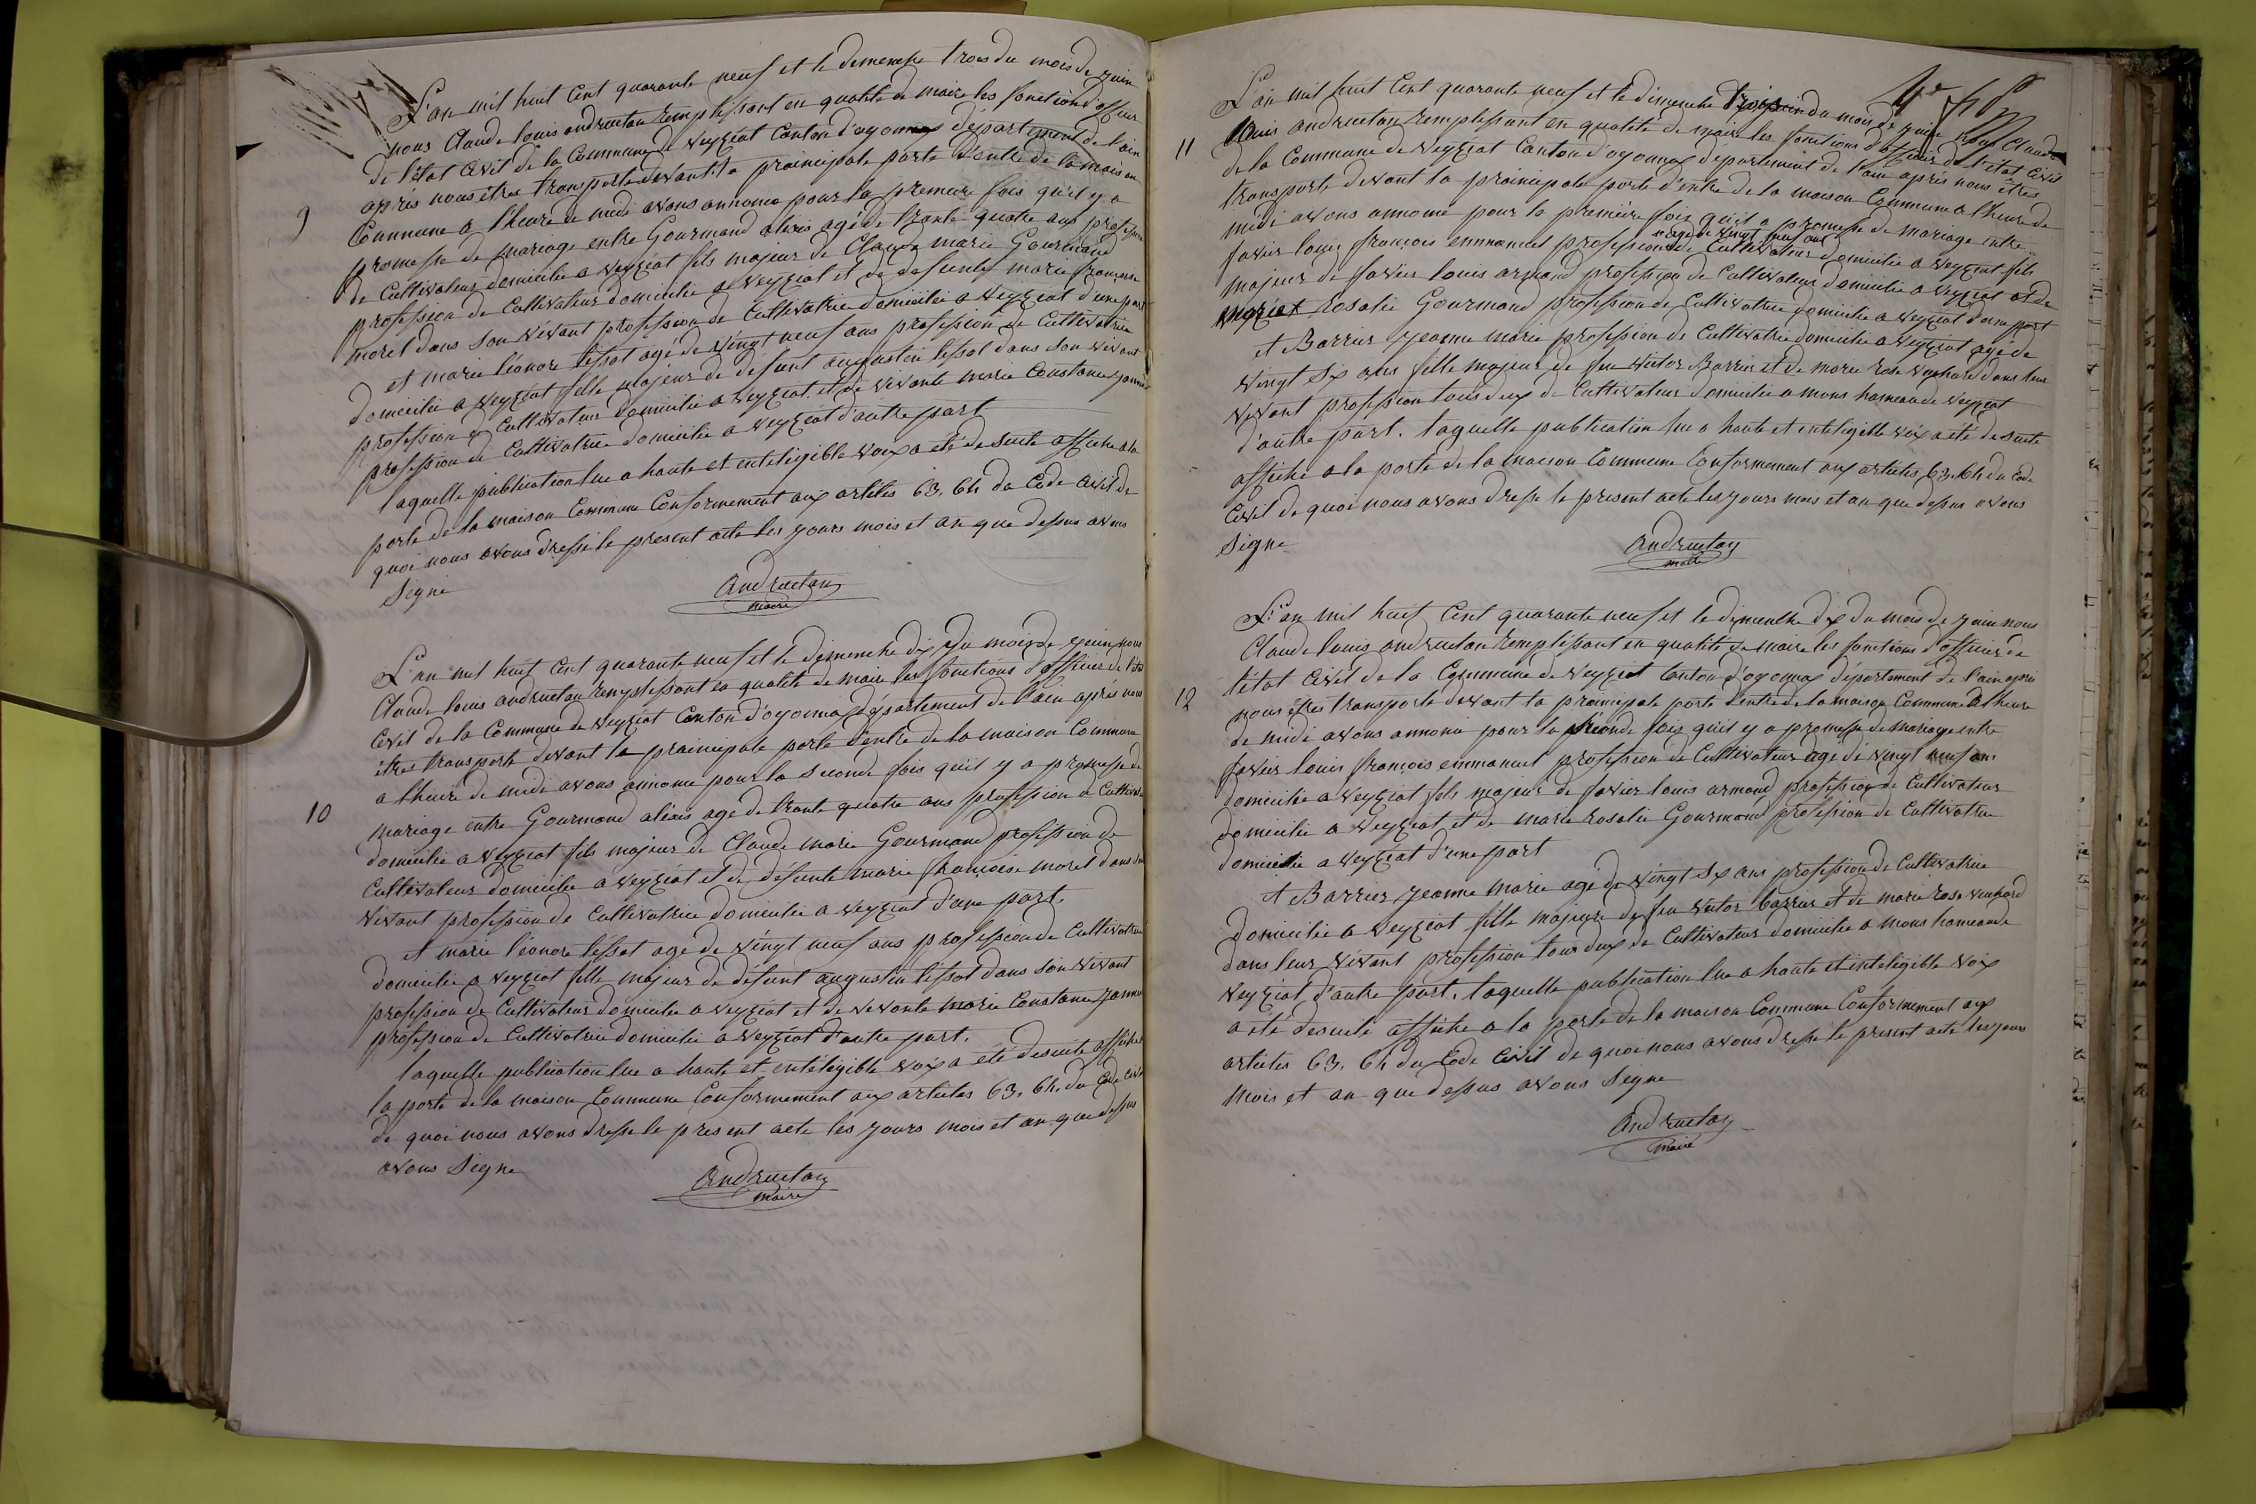 L'an mil huit Cent quarante neuf et le dimenche trois du mois de juin
nous Claude louis andruetan remplissant en qualité de maire les fonctions d'officier
de l'état Civil de la Commune de Veyziat Canton d'oyonnax département de l'ain
après nous êtres transporté devant la prainicipale porte d'entré de la maison
9
Commune a l'heure de midi avons annoncé pour la premiere fois qu'il y a
promesse de mariage entre Gourmand alexis agé de trante quatre ans profession
de Cultivateur domicilié a Veyziat fils majeur de Claude marie Gourmand
profession de Cultivateur domicilié a Veyziat et de defunte marie françoise
morel dans son vivant profession de Cultivatrice domiciliée a Veyziat d'une part
et marie léonore tissot agé de vingt neuf ans profession de Cultivatrice
domiciliée a Veyziat fille majeur de défunt augustin tissot dans son vivant
profession de Cultivateur domicilié a Veyziat et de vivante marie Constance
profession de Cultivatrice domiciliée a Veyziat d'autre part
laquelle publication lue a haute et inteligible voix a été de suite affiché a la
porte de la maison Commune Conformement aux articles 63. 64 du Code Civil de
quoi nous avons dressé le present acte les jours mois et an que dessus avons
Signé
andruetan
maire
L'an mil huit Cent quarante neuf et le dimenche dix du mois de juin nous
Claude louis andruetan remplissant en qualité de maire les fonctions d'officier de l'état
Civil de la Commune de Veyziat Canton d'oyonnax département de l'ain après nous
êtres transporté devant la prainicipale porte d'entré de la maison Commune
a l'heure de midi avons annoncé pour la seconde fois qu'il y a promesse de
10
mariage entre Gourmand alexis agé de trante quatre ans profession de Cultivateur
domicilié a Veyziat fils majeur de Claude marie Gourmand profession de
Cultivateur domicilié a Veyziat et de défunte marie françoise morel dans son
vivant profession de Cultivatrice domiciliée a Veyziat d'une part.
et marie léonore tissot agé de vingt neuf ans profession de Cultivatrice
domiciliée a Veyziat fille majeur de défunt augustin tissot dans son vivant
profession de Cultivateur domicilié a Veyziat et de vivante marie Constance
profession de Cultivatrice domiciliée a Veyziat d'autre part.
laquelle publication lue a haute et intéligible voix a été de suite affiché a
la porte de la maison Commune Conformement aux articles 63. 64. du Code Civil
de quoi nous avons dressé le present acte les jours mois et an que dessus
avons Signé
andruetan
maire
L'an mil huit Cent quarante neuf et le dimenche trois du mois de juin nous Claude
11
louis andruetan remplissant en qualité de maire les fonctions d'officier de l'état Civil
de la Commune de Veyziat Canton d'oyonnax département de l'ain après nous êtres
transporté devant la prainicipale porte d'entré de la maison Commune a l'heure de
midi avons annoncé pour la première fois qu'il a promesse de mariage entre
agé de vingt neuf ans
favier louis françois emmanuel profession de Cultivateur domicilié a Veyziat fils
majeur de favier louis armand profession de Cultivateur domicilié a Veyziat et de
marie Rosalie Gourmand profession de Cultivatrice domiciliée a Veyziat d'une part
et Barrier jeanne marie profession de Cultivatrice domiciliée a Veyziat agé de
vingt six ans fille majeur de feu victor Barrier et de marie rose dans leur
vivant profession tous deux de Cultivateur domicilié a mons hameau de Veyziat
d'autre part. laquelle publication lue a haute et inteligible voix a été de suite
affiché a la porte de la maison Commune Conformement aux articles 63. 64 du Code
Civil de quoi nous avons dressé le present acte les jours mois et an que dessus avons
Signé
andruetan
maire
L'an mil huit Cent quarante neuf et le dimenche dix du mois de juin nous
Claude louis andruetan remplissant en qualité de maire les fonctions d'officier de
l'état Civil de la Commune de Veyziat Canton d'oyonnax département de l'ain après
12
nous êtres transporté devant la prainicipale porte d'entré de la maison Commune a l'heure
de midi avons annoncé pour la séconde fois qu'il y a promesse de mariage entre
favier louis françois emmanuel profession de Cultivateur agé de vingt neuf ans
domicilié a Veyziat fils majeur de favier louis armand profession de Cultivateur
domicilié a Veyziat et de marie Rosalie Gourmand profession de Cultivatrice
domiciliée a Veyziat d'une part
et Barrier jeanne marie agé de vingt six ans profession de Cultivatrice
domiciliée a Veyziat fille majeure de feu victor barrier et de marie rose
dans leur vivant profession tous deux de Cultivateur domicilié a mons hameau de
Veyziat d'autre part. laquelle publication lue a haute et inteligible voix
a été de suite affiché a la porte de la maison Commune Conformement aux
articles 63. 64 du Code Civil de quoi nous avons dressé le present acte les jours
mois et an que dessus avons Signé
andruetan
maire